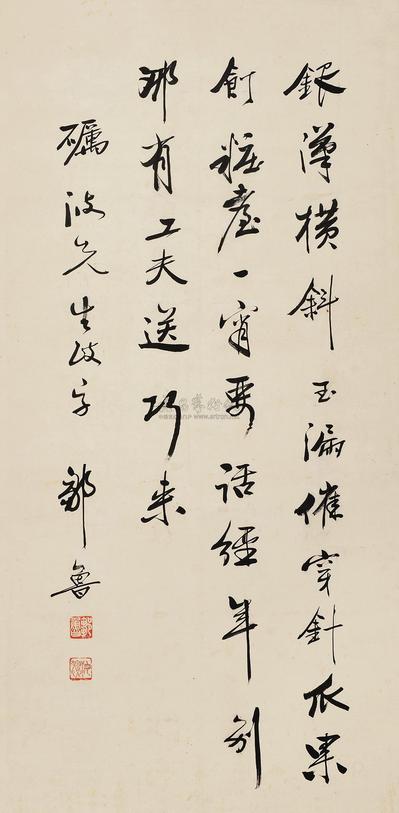 銀漢橫斜玉漏催穿針瓜果
飣粧臺一宵要話經年別
那有工夫送巧来
礪波先生政字 鄒魯